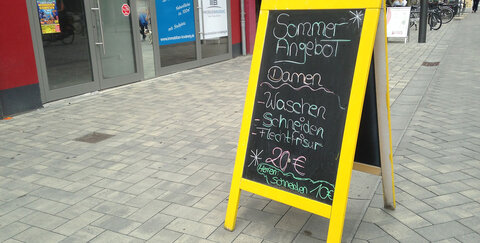 Sommer
Angebot
Damen
- Waschen
- Schneiden
- Flechtfrisur
20€
Herren
Schneiden 10€